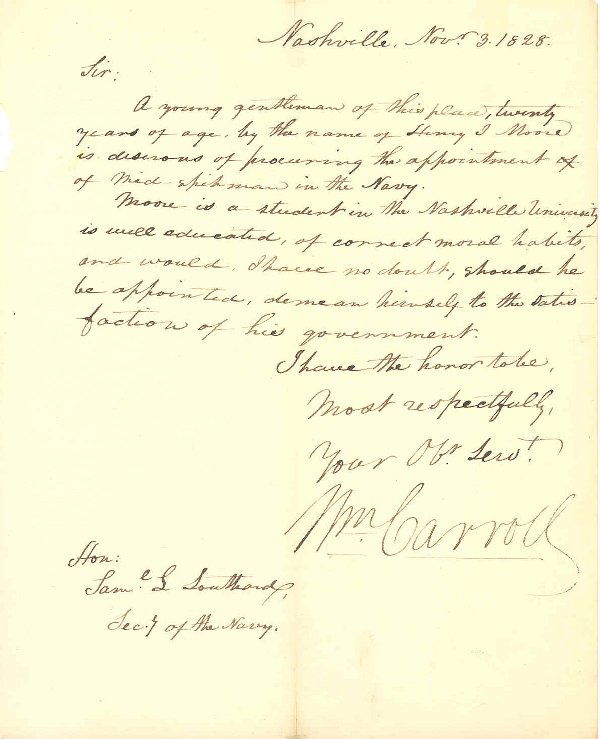 Nashville, Novr 3. 1828.
Sir:
A young gentleman of this place, twenty
years of age, by the name of Henry I Moore
is desirous of procuring the appointment of
of Mid shipman in the Navy.
Moore is a student in the Nashville University
is well educated, of correct moral habits,
and would, I have no doubt, should he
be appointed, demean himself to the satis-
faction of his government.
I have the honor to be,
Most respectfully,
Your Obt. Servt.
Wm Carroll
Hon:
Saml. L Southard,
Secy of the Navy.